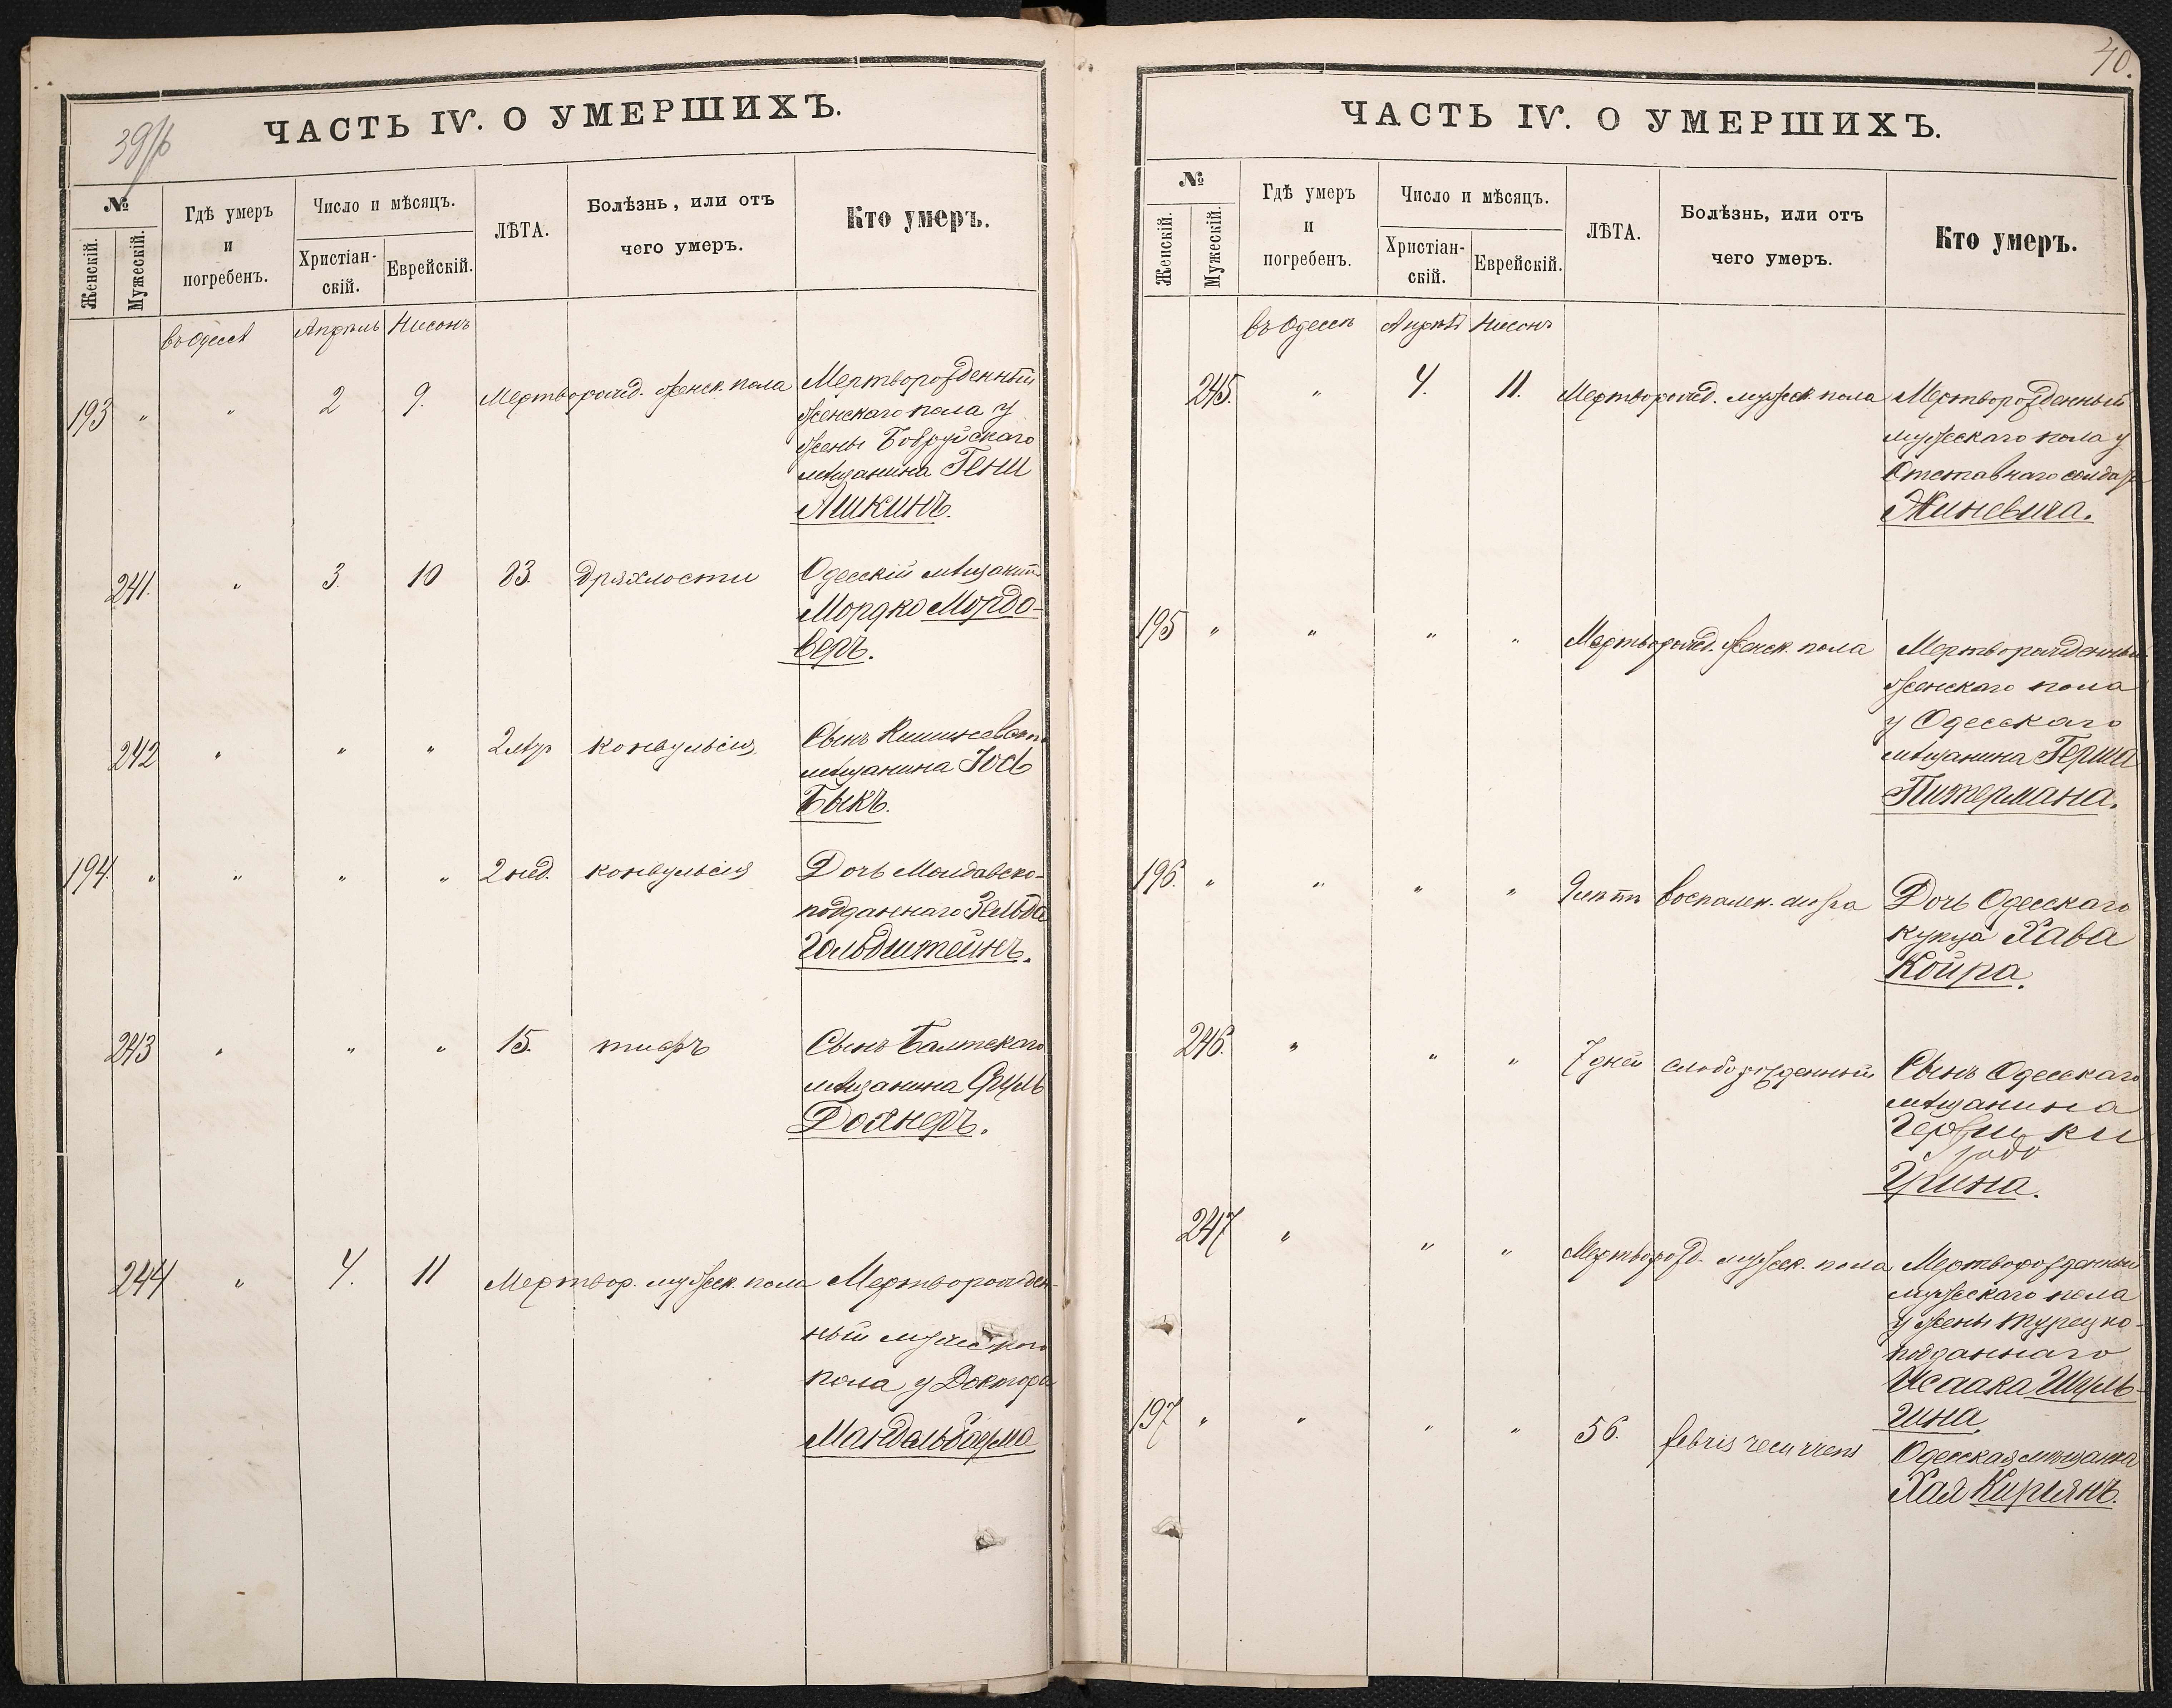 39/b
ЧАСТЬ IV. О УМЕРШИХЪ.
№
Женскій.
Мужескій.
Гдѣ умеръ
и
погребенъ.
Число и мѣсяцъ.
Христіан-
скій.
Еврейскій.
ЛѢТА.
Болѣзнь, или отъ
чего умеръ.
Кто умеръ.
въ Одессѣ Апрѣль Нисонъ
193 " " 2 9. Мерторожд. женск. пола Мертворожденный
женскаго пола у
жены Бобруйскаго
мѣщанина Гени
Ашкинъ.
241. " 3. 10 83. дряхлости Одесскій мѣщанинъ
Мордко Мордо-
веръ.
242 " " " 2 мѣр конвульсія Сынъ Кишиневскаго
мѣщанина Іосъ
Быкъ.
194 " " " " 2 нед. конвульсія Дочь Молдавско-
подданнаго Зельда
Гольдштейнъ.
243 " " " 15. тифъ Сынъ Балтскаго
мѣщанина Сруль
Дохнеръ.
244 " 4. 11 Мертвор. мужеск. пола Мертворожден-
ный мужескаго
пола у Доктора
Мандельбаума
40.
ЧАСТЬ IV. О УМЕРШИХЪ.
№
Женскій.
Мужескій.
Гдѣ умеръ
и
погребенъ.
Число и мѣсяцъ.
Христіан-
скій.
Еврейскій.
ЛѢТА.
Болѣзнь, или отъ
чего умеръ.
Кто умеръ.
въ Одессѣ Апрѣль Нисонъ
245. " 4. 11. Мертворожд. мужеск. пола Мертворожденный
мужескаго пола у
Отставнаго солдата
Жиневича.
195 " " " " Мертворожд. женск. пола Мертворожденный
женскаго пола
у Одесскаго
мѣщанина Герша
Питермана.
196. " " " " 9 лѣтъ воспален. мозга Дочь Одесскаго
купца Хава
Койра.
246. " " " 7 дней слаборожденный Сынъ Одесскаго
мѣщанина
Грина.
247 " " " Мертворожд. мужеск. пола Мертворожденный
мужескаго пола
у жены Турецко-
подданнаго
Исаака Шуль-
гина.
197 " " " " 56. febris recurrens Одесская мѣщанка
Хая Кирьякъ.